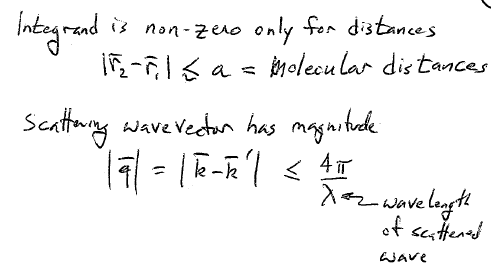 Integrand is non-zero only for distances
|r̄₂-r̄₁| ≲ a = Molecular distances
Scattering wavevector has magnitude
|q̄| = |k̄-k̄'| ≤ 4π/λ
wavelength
of scattered
wave